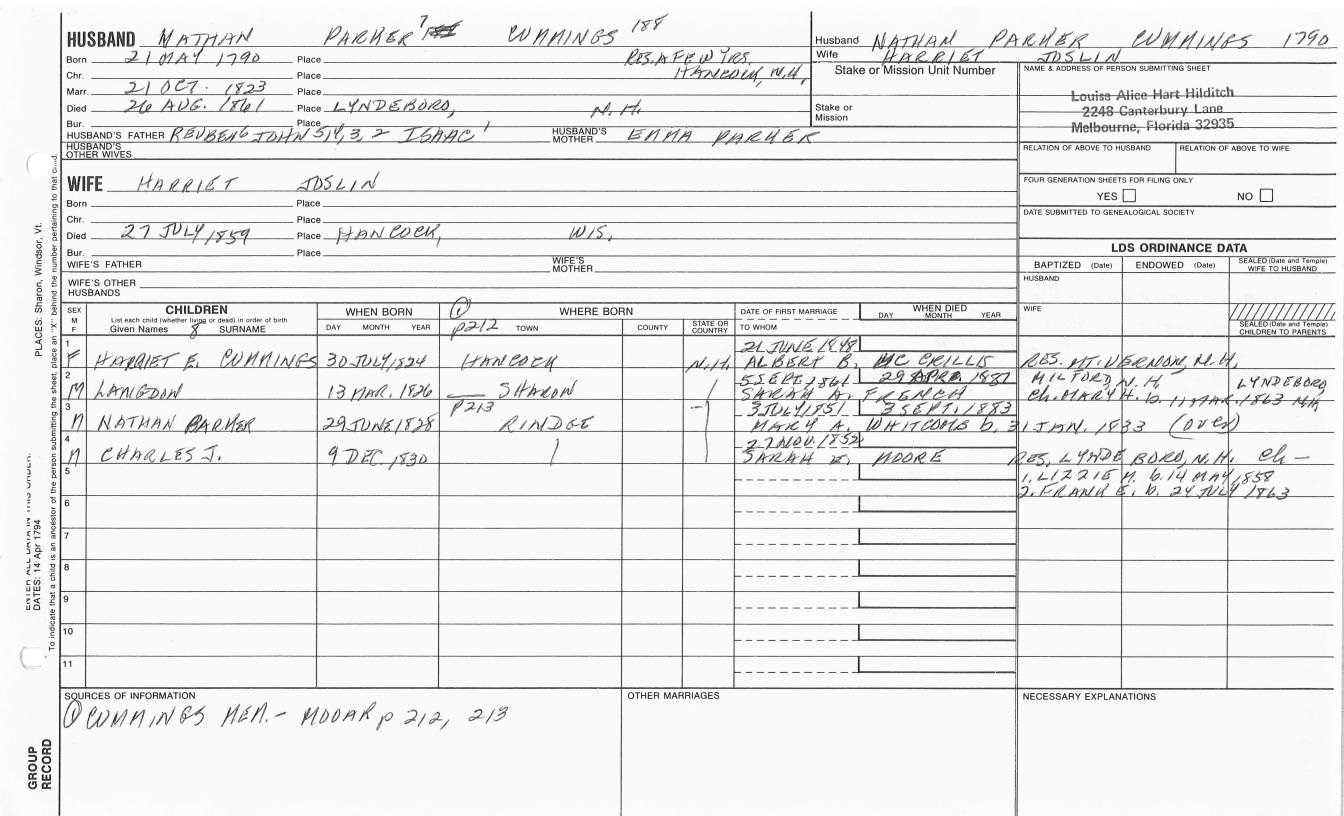 HUSBAND NATHAN PARKER 7 CUMMINGS 188
Born 21 MAY 1790 Place RES. A FEW YRS.
Chr. Place HANCOCK, N.H.
Marr. 21 OCT. 1823 Place
Died 26 AUG. 1861 Place LYNDEBORO, N.H.
Bur. Place
HUSBAND'S FATHER REUBEN6 JOHN 5,4,3,2 ISAAC 1 HUSBAND'S MOTHER EMMA PARKER
HUSBAND'S OTHER WIVES
Husband NATHAN PARKER CUMMINGS 1790
Wife HARRIET JOSLIN
Stake or Mission Unit Number
Stake or Mission
NAME & ADDRESS OF PERSON SUBMITTING SHEET
Louise Alice Hart Hilditch
2248 Canterbury Lane
Melbourne, Florida 32935
RELATION OF ABOVE TO HUSBAND RELATION OF ABOVE TO WIFE
FOUR GENERATION SHEETS FOR FILING ONLY
YES NO
DATE SUBMITTED TO GENEALOGICAL SOCIETY
WIFE HARRIET JOSLIN
Born Place
Chr. Place
Died 27 JULY 1859 Place HANCOCK, WIS.
Bur. Place
WIFE'S FATHER WIFE'S MOTHER
WIFE'S OTHER HUSBANDS
LDS ORDINANCE DATA
BAPTIZED (Date) ENDOWED (Date) SEALED (Date and Temple) WIFE TO HUSBAND
HUSBAND
WIFE
SEALED (Date and Temple) CHILDREN TO PARENTS
SEX M F
CHILDREN
List each child (whether living or dead) in order of birth
Given Names 8 SURNAME
WHEN BORN
DAY MONTH YEAR
① WHERE BORN
p212 TOWN COUNTY STATE OR COUNTRY
DATE OF FIRST MARRIAGE
TO WHOM
WHEN DIED
DAY MONTH YEAR
1 21 JUNE 1848
F HARRIET E. CUMMINGS 30 JULY 1824 HANCOCK N.H. ALBERT B. MC CRILLIS RES. MT. VERNON, N.H.
2 5 SEPT. 1861 29 APR. 1887 MILFORD, N.H. LYNDEBORO,
M LANGDON 13 MAR. 1826 SHARON SARAH A. FRENCH Ch. MARY H. b. 11 MAR. 1863 NH
3 p213 3 JULY 1851 3 SEPT. 1883
M NATHAN PARKER 29 JUNE 1828 RINDGE MARY A. WHITCOMB b. 31 JAN. 1833 (OVER)
4 27 NOV. 1852
M CHARLES J. 9 DEC. 1830 SARAH E. MOORE RES. LYNDEBORO, N.H. Ch —
5 1. LIZZIE M. b. 14 MAY 1858
6 2. FRANK E. b. 24 JULY 1863
7
8
9
10
11
SOURCES OF INFORMATION
① CUMMINGS MEM. - MOOAR p 212, 213
OTHER MARRIAGES
NECESSARY EXPLANATIONS
PLACES: Sharon, Windsor, Vt.
DATES: 14 Apr 1794
To indicate that a child is an ancestor of the person submitting the sheet, place an "X" behind the number pertaining to that
GROUP RECORD